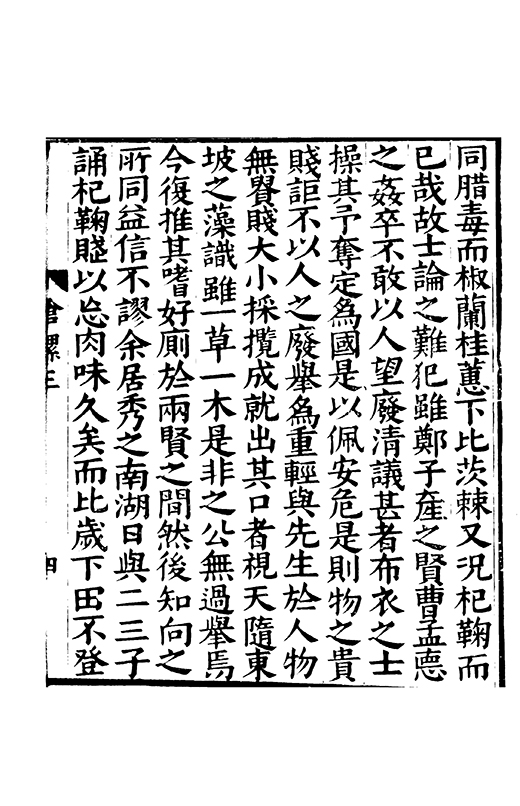 同腊毒而椒蘭桂蕙下比茨棘又况杞鞠而
已哉故士論之難犯雖鄭子產之賢曹孟惪
之姦卒不敢以人望廢清議甚者布衣之士
操其予奪定爲國是以佩安危是則物之貴
賤詎不以人之廢舉爲重輕與先生於人物
無貴賤大小採攬成就出其口者視天隨東
坡之藻識雖一草一木是非之公無過舉焉
今復推其嗜好厠於兩賢之間然後知向之
所同益信不謬余居秀之南湖日與二三子
誦杞鞠賦以忘肉味久矣而比歲下田不登
滄螺三
四